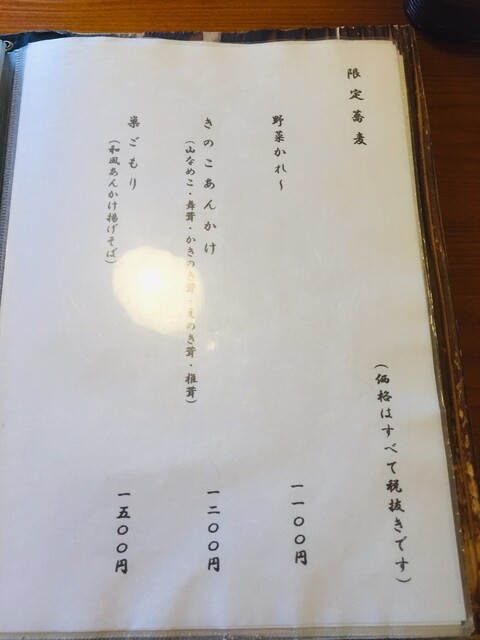 限定蕎麦
(価格はすべて税抜きです)
野菜かれ~
一一〇〇円
きのこあんかけ
(山なめこ・舞茸・かきのき茸・えのき茸・椎茸)
一二〇〇円
巣ごもり
(和風あんかけ揚げそば)
一五〇〇円